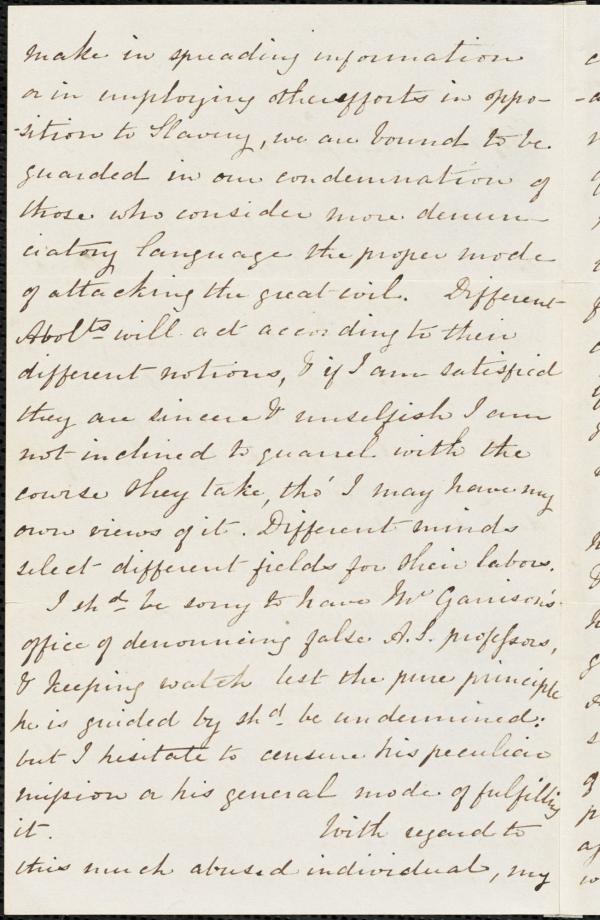 make in spreading information
or in employing other efforts in oppo-
-sition to Slavery, we are bound to be
guarded in our condemnation of
those who consider more denun-
ciatory language the proper mode
of attacking the great evil. Different
Abolts will act according to their
different notions, & if I am satisfied
they are sincere & unselfish I am
not inclined to quarrel with the
course they take, tho' I may have my
own views of it. Different minds
select different fields for their labors.
I shd be sorry to have Mr Garrison's
office of denouncing false A.S. professors,
& keeping watch lest the pure principle
he is guided by shd be undermined:
but I hesitate to censure his peculiar
mission or his general mode of fulfilling
it. With regard to
this much abused individual, my